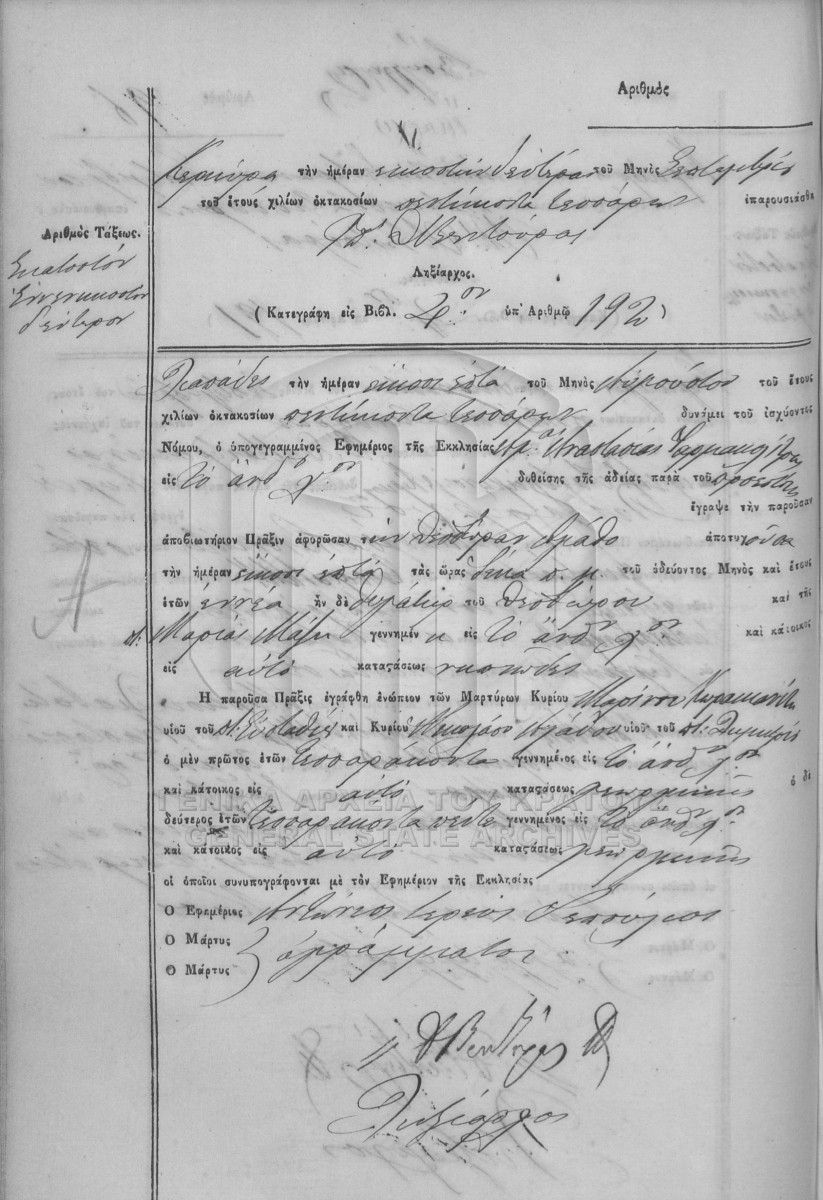 Ἀριθμός
Κερκύρα τὴν ἡμέραν εικοστὴν δευτέραν τοῦ Μηνὸς Σεπτεμβρίου
τοῦ ἔτους χιλίων ὀκτακοσίων πεντήκοντα τεσσάρων ἐπαρουσιάσθη
Βεντούρας
Ληξίαρχος.
(Κατεγράφη εἰς Βιβλ. 2ον ὑπ' Ἀριθμῷ 192)
Ἀριθμὸς Τάξεως.
Εκατοστόν
Ἐννενηκοστον
δεύτερον
Λιαπάδες τὴν ἡμέραν εἴκοσι επτά τοῦ Μηνὸς Αυγούστου τοῦ ἔτους
χιλίων ὀκτακοσίων πεντήκοντα τεσσάρων δυνάμει τοῦ ἰσχύοντος
Νόμου, ὁ ὑπογεγραμμένος Ἐφημέριος τῆς Ἐκκλησίας Αγ. Αναστασίας Φαρμακολύτρας
εἰς τὸ ἀνδ χον δοθείσης τῆς ἀδείας παρὰ τοῦ προεστῶτος
ἔγραψε τὴν παροῦσαν
ἀποβιωτήριον Πρᾶξιν ἀφορῶσαν την ἀποτυχοῦσα
τὴν ἡμέραν εἴκοσι επτά τὰς ὥρας δέκα π. μ. τοῦ ὁδεύοντος Μηνὸς καὶ ἔτους
ἐτῶν εννέα ἦν δὲ θυγάτηρ τοῦ Θεοδώρου καὶ τῆς
Μαρίας γεννημένη εἰς τὸ ἀνδ χον καὶ κάτοικος
εἰς αὐτό καταστάσεως
Ἡ παροῦσα Πρᾶξις ἐγράφθη ἐνώπιον τῶν Μαρτύρων Κυρίου
υἱοῦ τοῦ Ευσταθίου καὶ Κυρίου Νικολάου υἱοῦ τοῦ Δημητρίου
ὁ μὲν πρῶτος ἐτῶν τεσσαράκοντα γεννημένος εἰς τὸ ἀνδ χον
καὶ κάτοικος εἰς αὐτό καταστάσεως γεωργικῆς ὁ δὲ
δεύτερος ἐτῶν τεσσαρακοντα πέντε γεννημένος εἰς τὸ ἀνδ χον
καὶ κάτοικος εἰς αὐτό καταστάσεως γεωργικῆς
οἱ ὁποῖοι συνυπογράφονται μὲ τὸν Ἐφημέριον τῆς Ἐκκλησίας
Ὁ Ἐφημέριος Αντώνιος ιερεύς
Ὁ Μάρτυς
Ὁ Μάρτυς αγράμματοι
Βεντούρας
Ληξίαρχος
ΓΕΝΙΚΑ ΑΡΧΕΙΑ ΤΟΥ ΚΡΑΤΟΥΣ
GENERAL STATE ARCHIVES